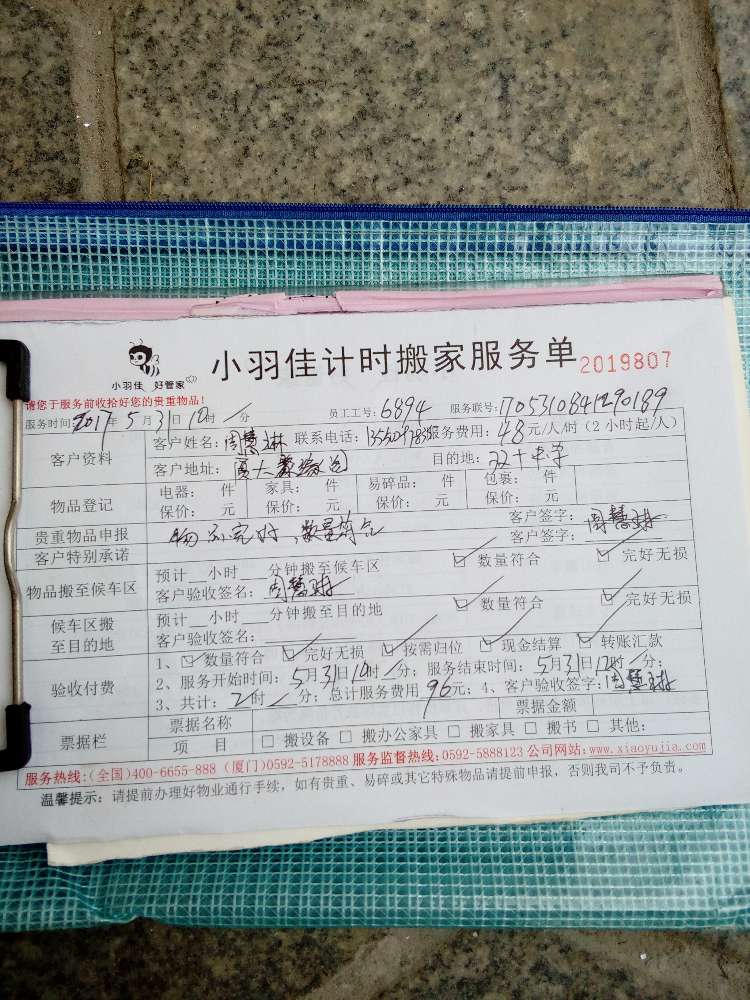 小羽佳 好管家
小羽佳计时搬家服务单 2019807
请您于服务前收拾好您的贵重物品!
服务时间: 2017年 5月31日10时/分 员工工号: 6894 服务联号: 1705310841290189
客户资料
客户姓名: 周慧琳 联系电话: 服务费用: 48元/人/时 (2小时起/人)
客户地址: 目的地: 双十中学
物品登记
电器: 件 家具: 件 易碎品: 件 包裹: 件
保价: 元 保价: 元 保价: 元 保价: 元
贵重物品申报 客户签字: 周慧琳
客户特别承诺 物品完好、数量符合 客户签字:
物品搬至候车区
预计__小时___分钟搬至候车区 ☑ 数量符合 ☑ 完好无损
客户验收签名: 周慧琳
候车区搬至目的地
预计__小时___分钟搬至目的地 ☑ 数量符合 ☑ 完好无损
客户验收签名:
验收付费
1、☑数量符合 ☑完好无损 ☑按需归位 ☑现金结算 ☑转账汇款
2、服务开始时间: 5月31日10时/分; 服务结束时间: 5月31日12时/分;
3、共计: 2时/分; 总计服务费用96元; 4、客户验收签字: 周慧琳
票据栏
票据名称 票据金额
项 目 □ 搬设备 □ 搬办公家具 □ 搬家具 □ 搬书 □ 其他:
服务热线:(全国)400-6655-888 (厦门)0592-5178888 服务监督热线:0592-5888123 公司网站:www.xiaoyujia.com
温馨提示: 请提前办理好物业通行手续, 如有贵重、易碎或其它特殊物品请提前申报, 否则我司不予负责。